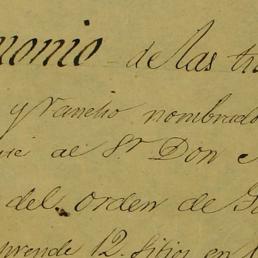 monio de las
y rancho nombrado
al Sr. Don
del orden de
prende 12. sitios en